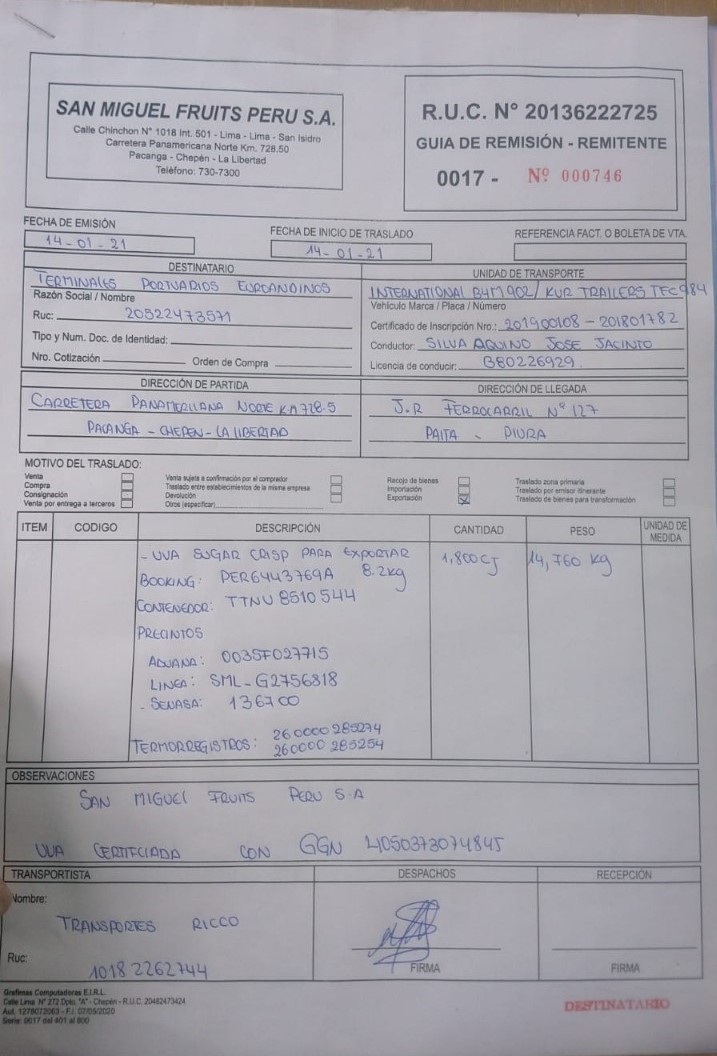 SAN MIGUEL FRUITS PERU S.A.
Calle Chinchon N° 1018 Int. 501 - Lima - Lima - San Isidro
Carretera Panamericana Norte Km. 728.50
Pacanga - Chepén - La Libertad
Teléfono: 730-7300
R.U.C. N° 20136222725
GUIA DE REMISIÓN - REMITENTE
0017 - Nº 000746
FECHA DE EMISIÓN
14-01-21
FECHA DE INICIO DE TRASLADO
14-01-21
REFERENCIA FACT. O BOLETA DE VTA.
DESTINATARIO
TERMINALES PORTUARIOS EUROANDINOS
Razón Social / Nombre
Ruc: 20522473571
Tipo y Num. Doc. de Identidad:
Nro. Cotización Orden de Compra
UNIDAD DE TRANSPORTE
INTERNATIONAL B4M902/ KUR TRAILERS TEC984
Vehículo Marca / Placa / Número
Certificado de Inscripción Nro.: 201900108 - 201801782
Conductor: SILVA AQUINO JOSE JACINTO
Licencia de conducir: B80226929
DIRECCIÓN DE PARTIDA
CARRETERA PANAMERICANA NORTE KM 728.5
PACANGA - CHEPEN - LA LIBERTAD
DIRECCIÓN DE LLEGADA
J.R FERROCARRIL N° 127
PAITA - PIURA
MOTIVO DEL TRASLADO:
Venta
Compra
Consignación
Venta por entrega a terceros
Venta sujeta a confirmación por el comprador
Traslado entre establecimientos de la misma empresa
Devolución
Otros (especificar)
Recojo de bienes
Importación
Exportación
Traslado zona primaria
Traslado por emisor itinerante
Traslado de bienes para transformación
ITEM CODIGO DESCRIPCIÓN CANTIDAD PESO UNIDAD DE MEDIDA
- UVA SUGAR CRISP PARA EXPORTAR 1,800CJ 14,760 kg
BOOKING: PER6443769A 8.2kg
CONTENEDOR: TTNU 8510544
PRECINTOS
ADUANA: 0035F027715
LINEA: SML-G2756818
- SENASA: 136700
TERMORREGISTROS: 260000285274
260000 285254
OBSERVACIONES
SAN MIGUEL FRUITS PERU S.A
UVA CERTIFCIADA CON GGN 4050373074845
TRANSPORTISTA
Nombre:
TRANSPORTES RICCO
Ruc:
10182262744
DESPACHOS
FIRMA
RECEPCIÓN
FIRMA
Grafimas Computadoras E.I.R.L.
Calle Lima N° 272 Dpto. "A" - Chepén - R.U.C. 20482473424
Aut. 1278072063 - F.I. 07/05/2020
Serie: 0017 del 401 al 800
DESTINATARIO